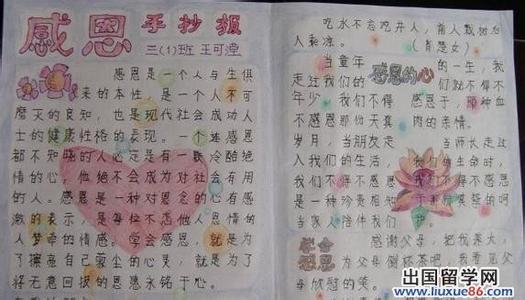 感恩手抄报
三(1)班 王可滢
感恩是一个人与生俱
来的本性,是一个人不可
磨灭的良知,也是现代社会成功人
士的健康性格的表现。一个连感恩
都不知晓的人必定是有一颗冷酷绝
情的心,他绝不会成为对社会有用
的人。感恩是一种对恩念的心有感
激的表示,是每位不忘他人恩情的
人梦牵的情感。学会感恩,就是为
了擦亮自己蒙尘的心灵,就是为了
将无意回报的恩惠永铭于心。
吃水不忘吃井人,前人栽树后
人乘凉。
当童年
感恩的心
的一生,我
走过我们的
们就不得不
年少
我们不得
感恩于,那种血
不感恩那份天真
肉的亲情。
岁月,当朋友走
当师长走过
入我们的生活,
我们的生命时,
我们不得不感恩
我们不得不感恩
是一种珍贵相
学会
感恩
感谢父母,把我养大,
为父母倒杯茶吧,我看见
父母欣慰的笑。
出国留学网
www.liuxue86.com